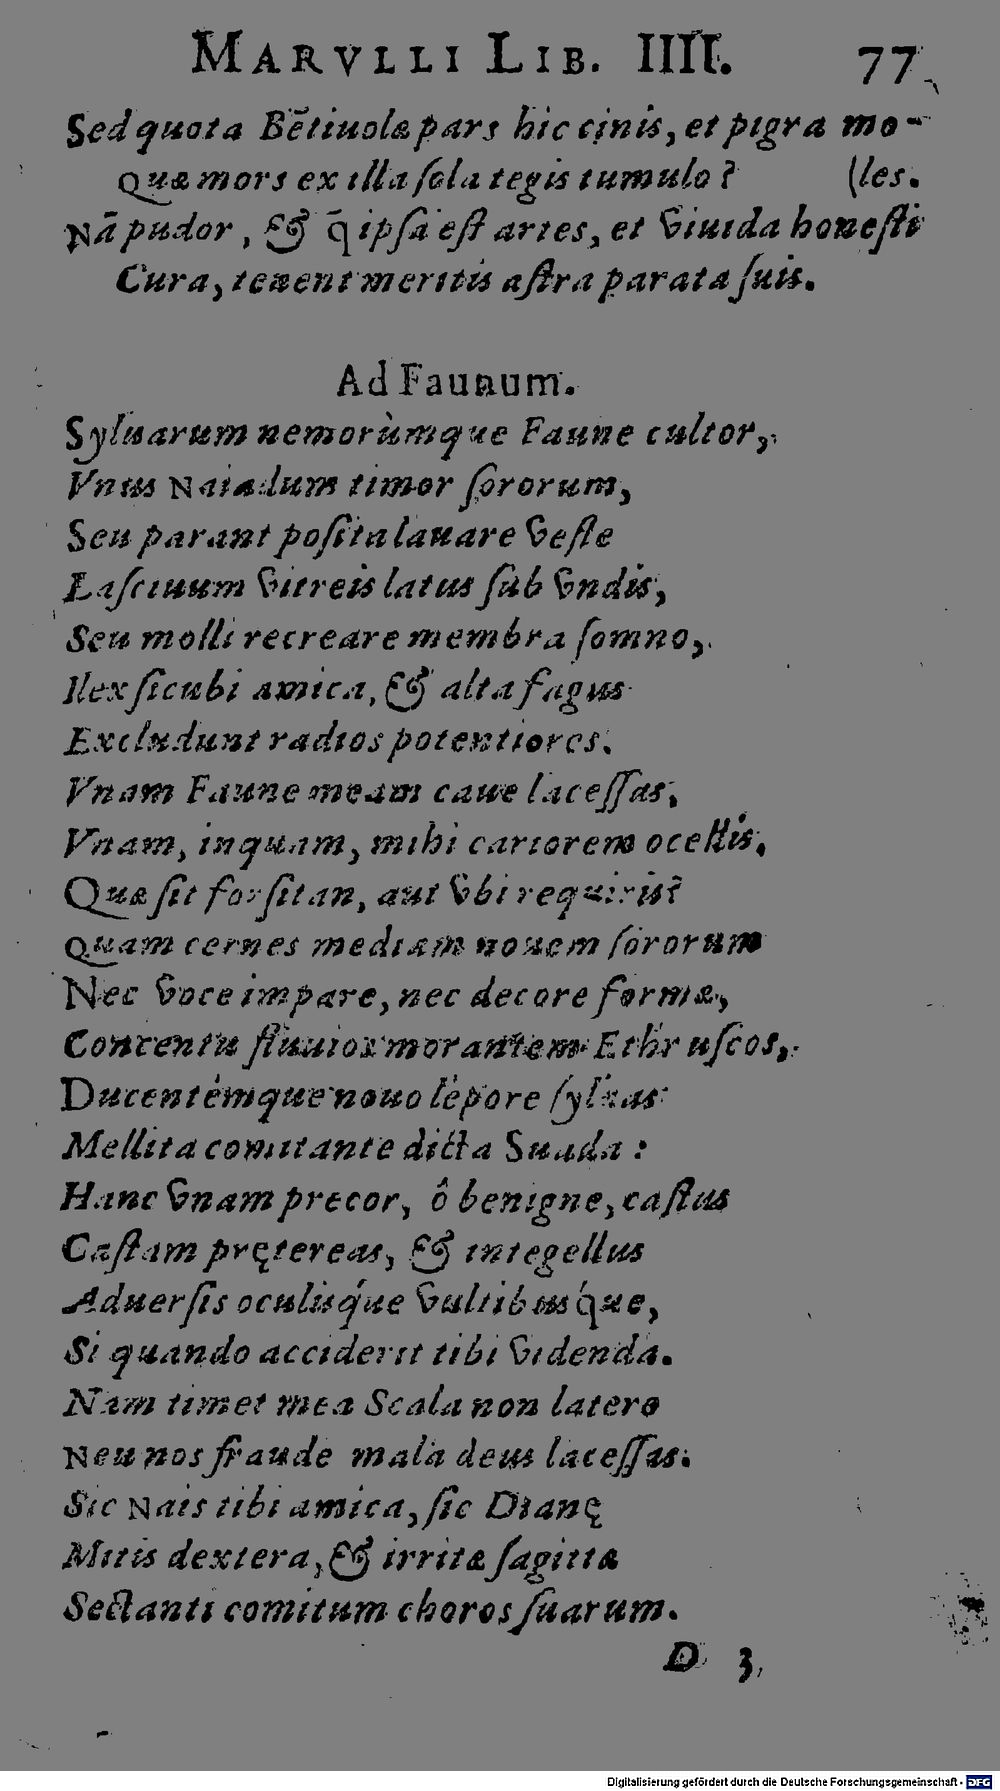 MARVLLI LIB. IIII. 77
Sed quota Bẽtiuolæ pars hic cinis, et pigra mo-
Quæ mors ex illa ſola tegis tumulo? (les.
Nã pudor, & q̄ ipſa eſt artes, et viuida honeſti
Cura, tenent meritis aſtra parata ſuis.
Ad Faunum.
Syluarum nemorùmque Faune cultor,
Vnus Naiadum timor ſororum,
Seu parant poſita lauare veſte
Laſciuum vitreis latus ſub vndis,
Seu molli recreare membra ſomno,
Ilex ſicubi amica, & alta fagus
Excludunt radios potentiores.
Vnam Faune meam caue laceſſas,
Vnam, inquam, mihi cariorem ocellis.
Quæ ſit forſitan, aut vbi requiris?
Quam cernes mediam nouem ſororum
Nec voce impare, nec decore formæ,
Concentu fluuios morantem Ethruſcos,
Ducentémque nouo lepore ſyluas
Mellita comitante dicta Suada:
Hanc vnam precor, ô benigne, caſtus
Caſtam prętereas, & integellus
Aduerſis oculiſq́ue vultibuſq́ue,
Si quando acciderit tibi videnda.
Nam timet mea Scala non latere
Neu nos fraude mala deus laceſſas.
Sic Nais tibi amica, ſic Dianę
Mitis dextera, & irritæ ſagittæ
Sectanti comitum choros ſuarum.
D 3
Digitalisierung gefördert durch die Deutsche Forschungsgemeinschaft - DFG